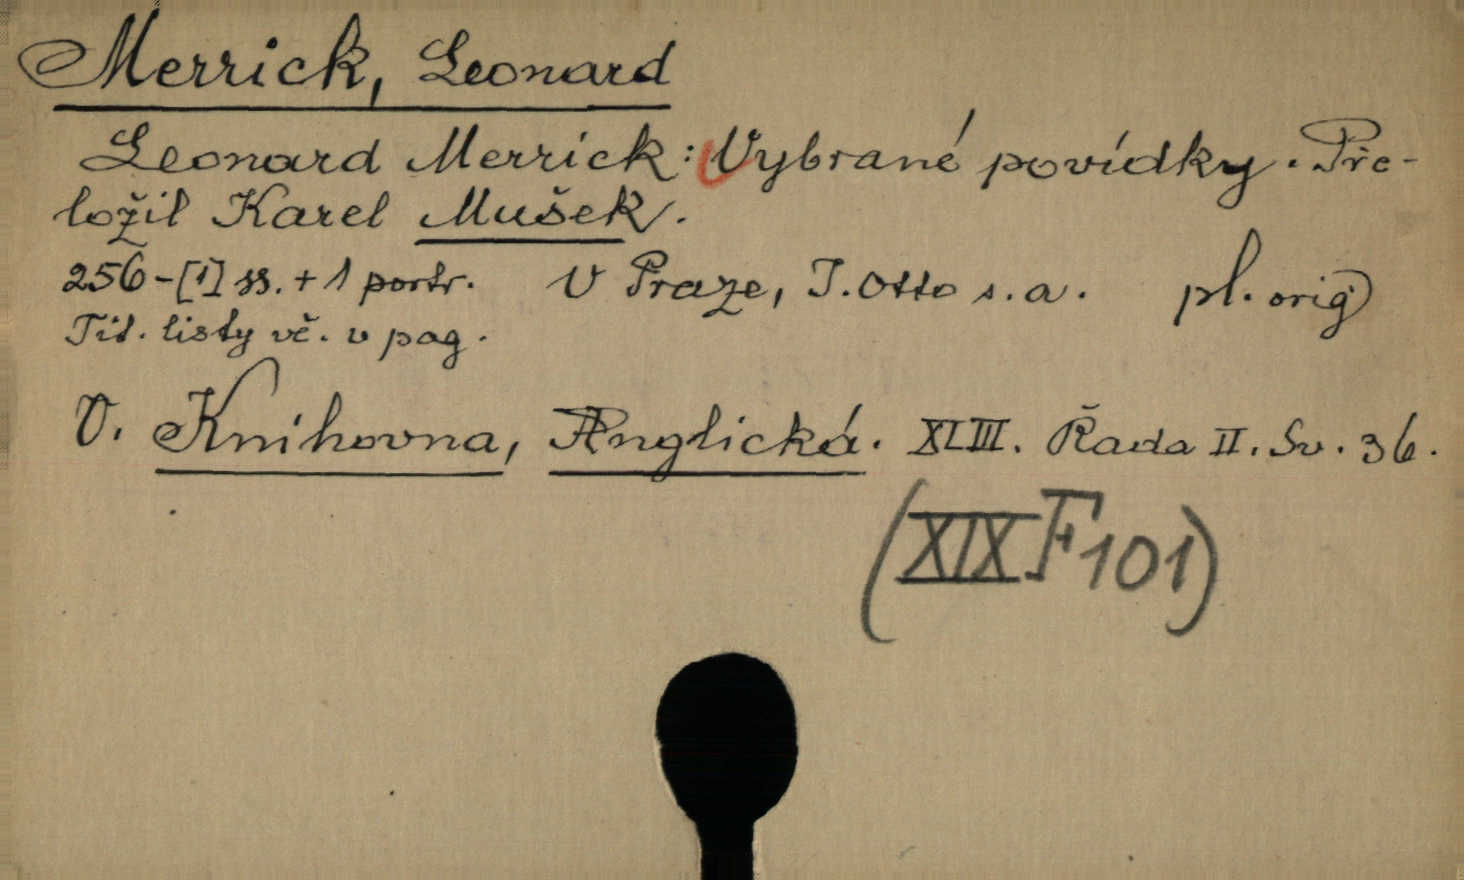 Merrick, Leonard
Leonard Merrick: Vybrané povídky. Pře-
ložil Karel Mušek.
256-[1] ss. + 1 portr. V Praze, J. Otto s.a. pl. orig
Tit. listy vč. v pag.
V. Knihovna, Anglická. XLIII. Řada II. Sv. 36.
(XIX F 101)